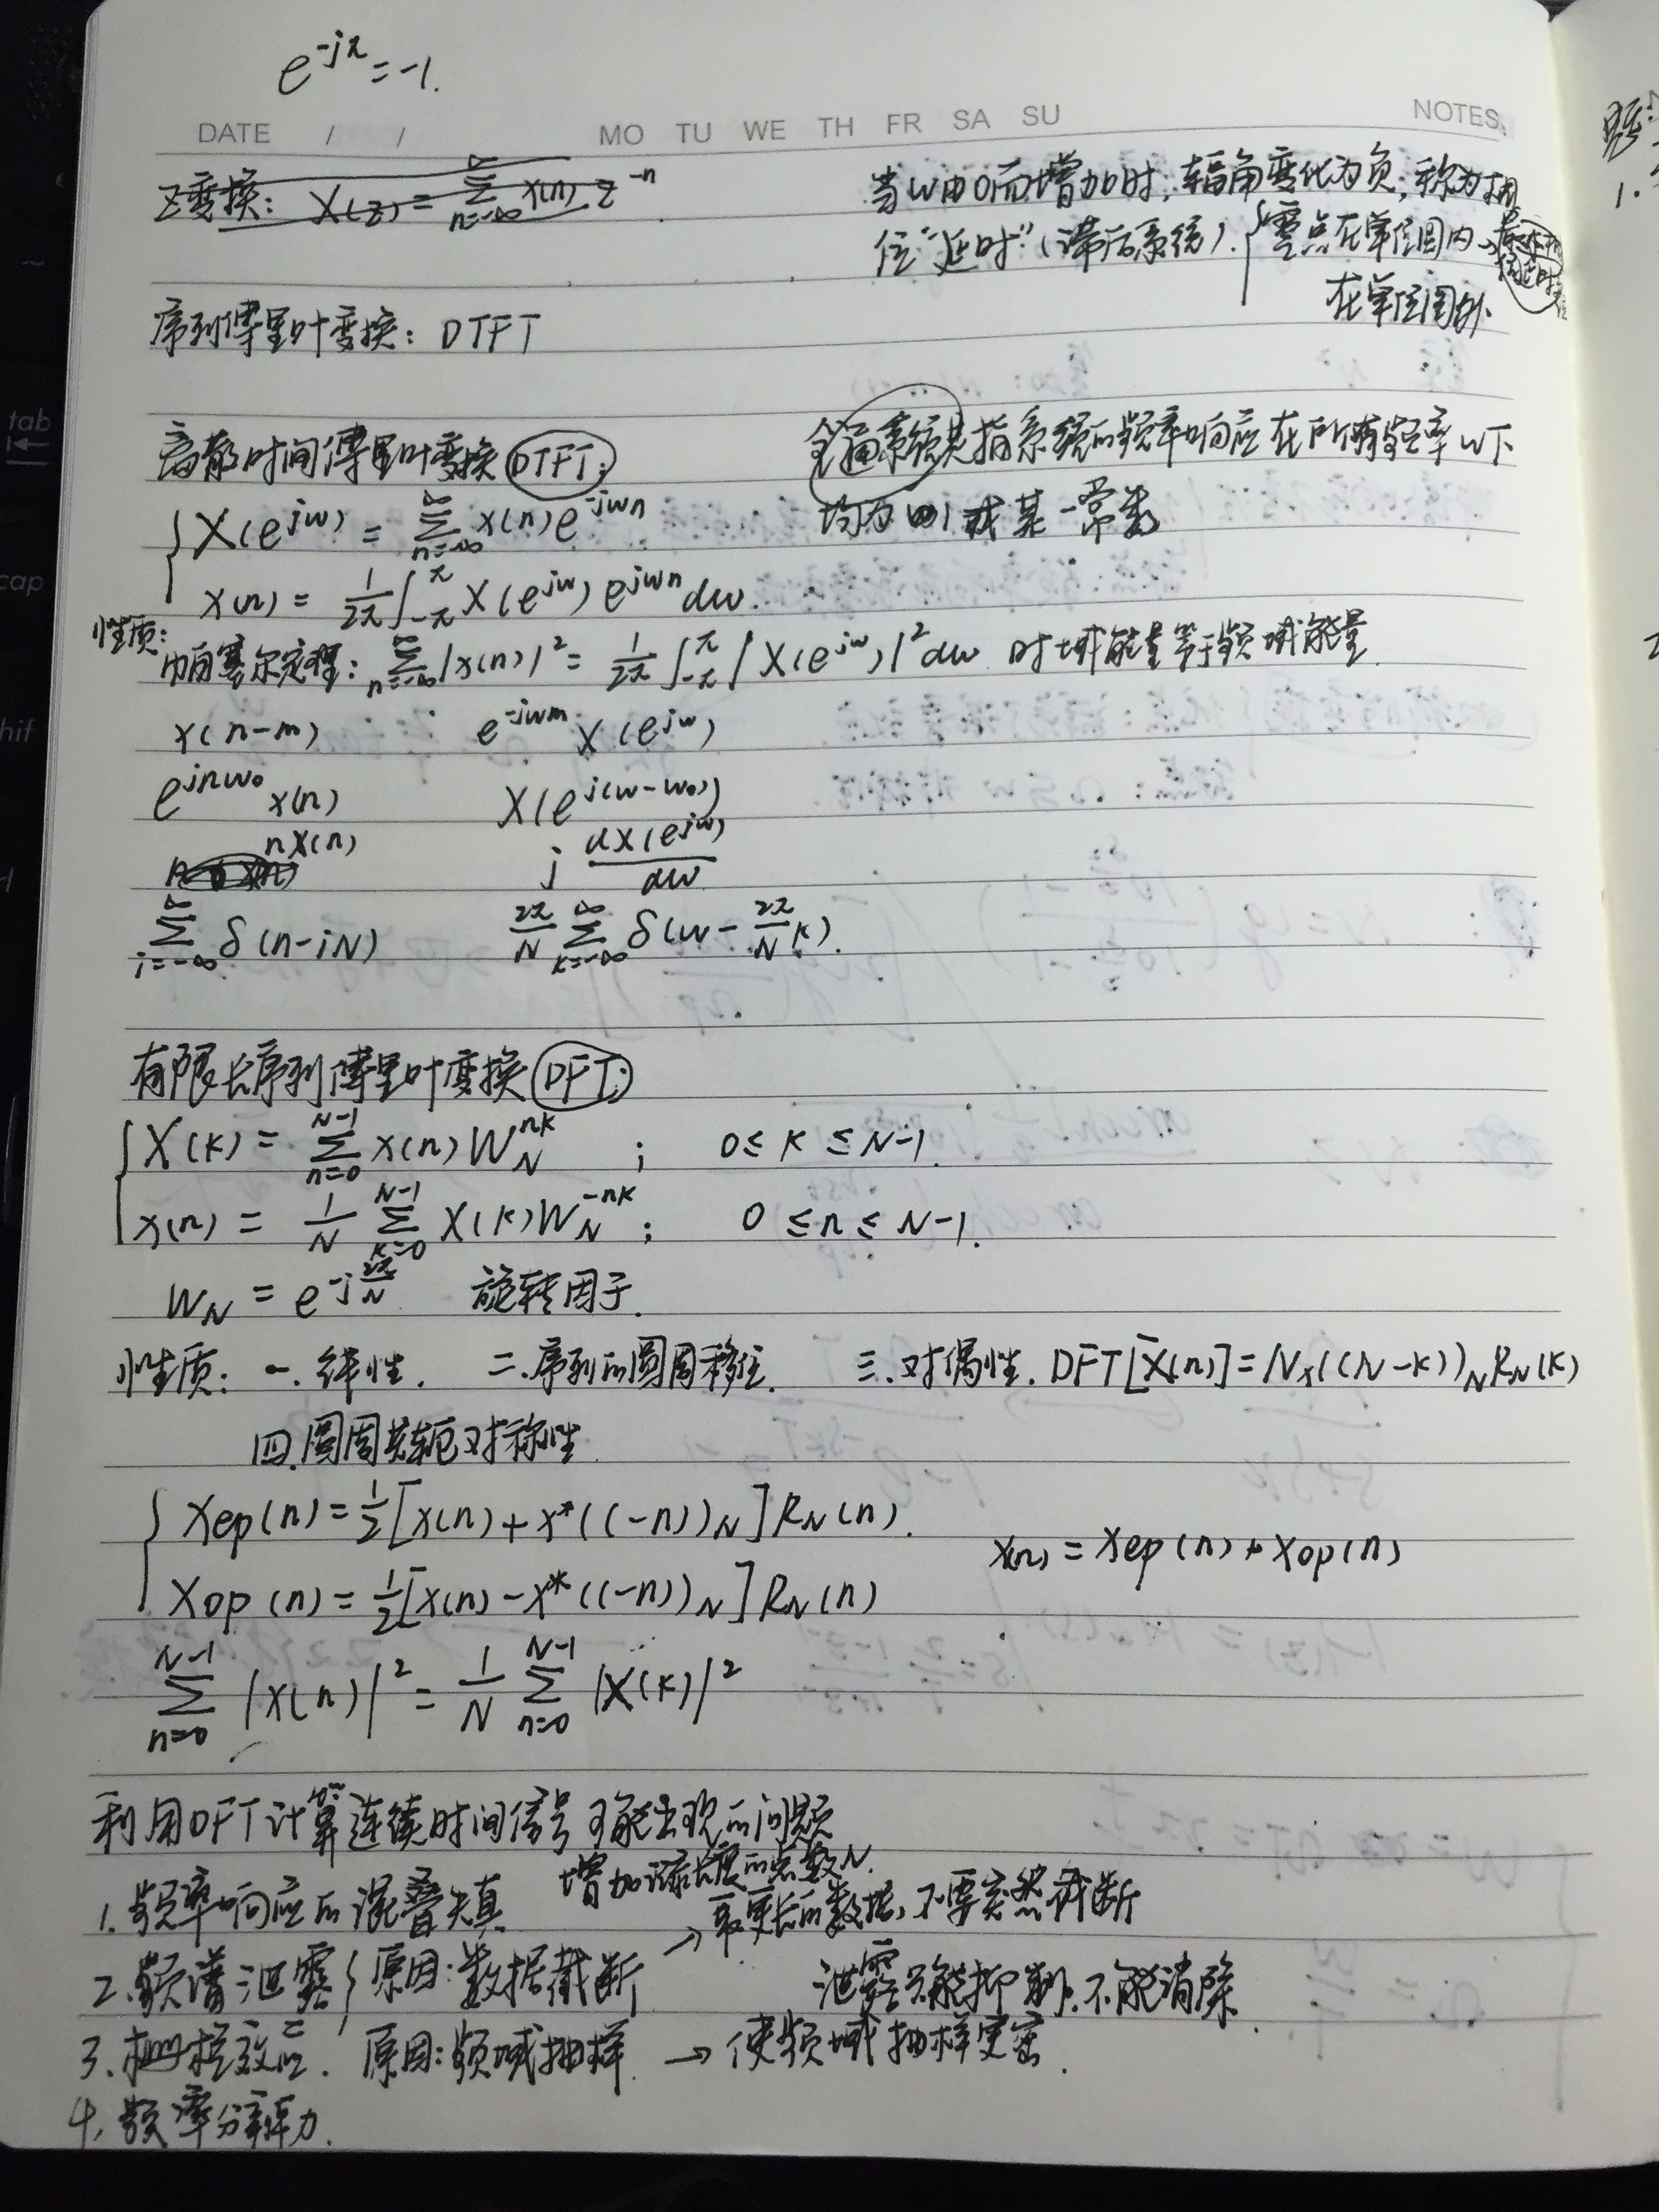 e^{-jπ} = -1.
DATE / / MO TU WE TH FR SA SU NOTES
Z变换: X(z) = \sum_{n=-∞}^{∞} x(n) z^{-n}
当w由0而增加时,辐角变化为负,称为相
位“延时”(滞后系统). { 零点在单位圆内→最小相位延时
在单位圆外
序列傅里叶变换: DTFT
离散时间傅里叶变换 DTFT:
X(e^{jw}) = \sum_{n=-∞}^{∞} x(n) e^{-jwn}
x(n) = \frac{1}{2π} \int_{-π}^{π} X(e^{jw}) e^{jwn} dw.
全通系统是指系统的频率响应在所有频率w下
均为1或某一常数
性质:
帕塞尔定理: \sum_{n=-∞}^{∞} |x(n)|^2 = \frac{1}{2π} \int_{-π}^{π} |X(e^{jw})|^2 dw 时域能量等于频域能量.
x(n-m) e^{-jwm} X(e^{jw})
e^{jnw_0} x(n) X(e^{j(w-w_0)})
nx(n) j \frac{dX(e^{jw})}{dw}
\sum_{i=-∞}^{∞} δ(n-iN) \frac{2π}{N} \sum_{k=-∞}^{∞} δ(w - \frac{2π}{N} k).
有限长序列傅里叶变换 DFT:
X(k) = \sum_{n=0}^{N-1} x(n) W_N^{nk} ; 0 ≤ k ≤ N-1.
x(n) = \frac{1}{N} \sum_{k=0}^{N-1} X(k) W_N^{-nk} ; 0 ≤ n ≤ N-1.
W_N = e^{-j\frac{2π}{N}} 旋转因子.
性质: 一.线性. 二.序列的圆周移位. 三.对偶性. DFT[X(n)] = Nx((N-k))_N R_N(k)
四.圆周共轭对称性
Xep(n) = \frac{1}{2}[x(n) + x^*((-n))_N] R_N(n).
Xop(n) = \frac{1}{2}[x(n) - x^*((-n))_N] R_N(n)
x(n) = Xep(n) + Xop(n)
\sum_{n=0}^{N-1} |x(n)|^2 = \frac{1}{N} \sum_{n=0}^{N-1} |X(k)|^2
利用DFT计算连续时间信号可能出现的问题
1.频率响应的混叠失真 增加 长度的点数N.
2.频谱泄露 { 原因:数据截断 → 取更长的数据,不要突然截断
泄露只能抑制.不能消除.
3.栅栏效应. 原因:频域抽样. → 使频域抽样更密.
4.频率分辨力.